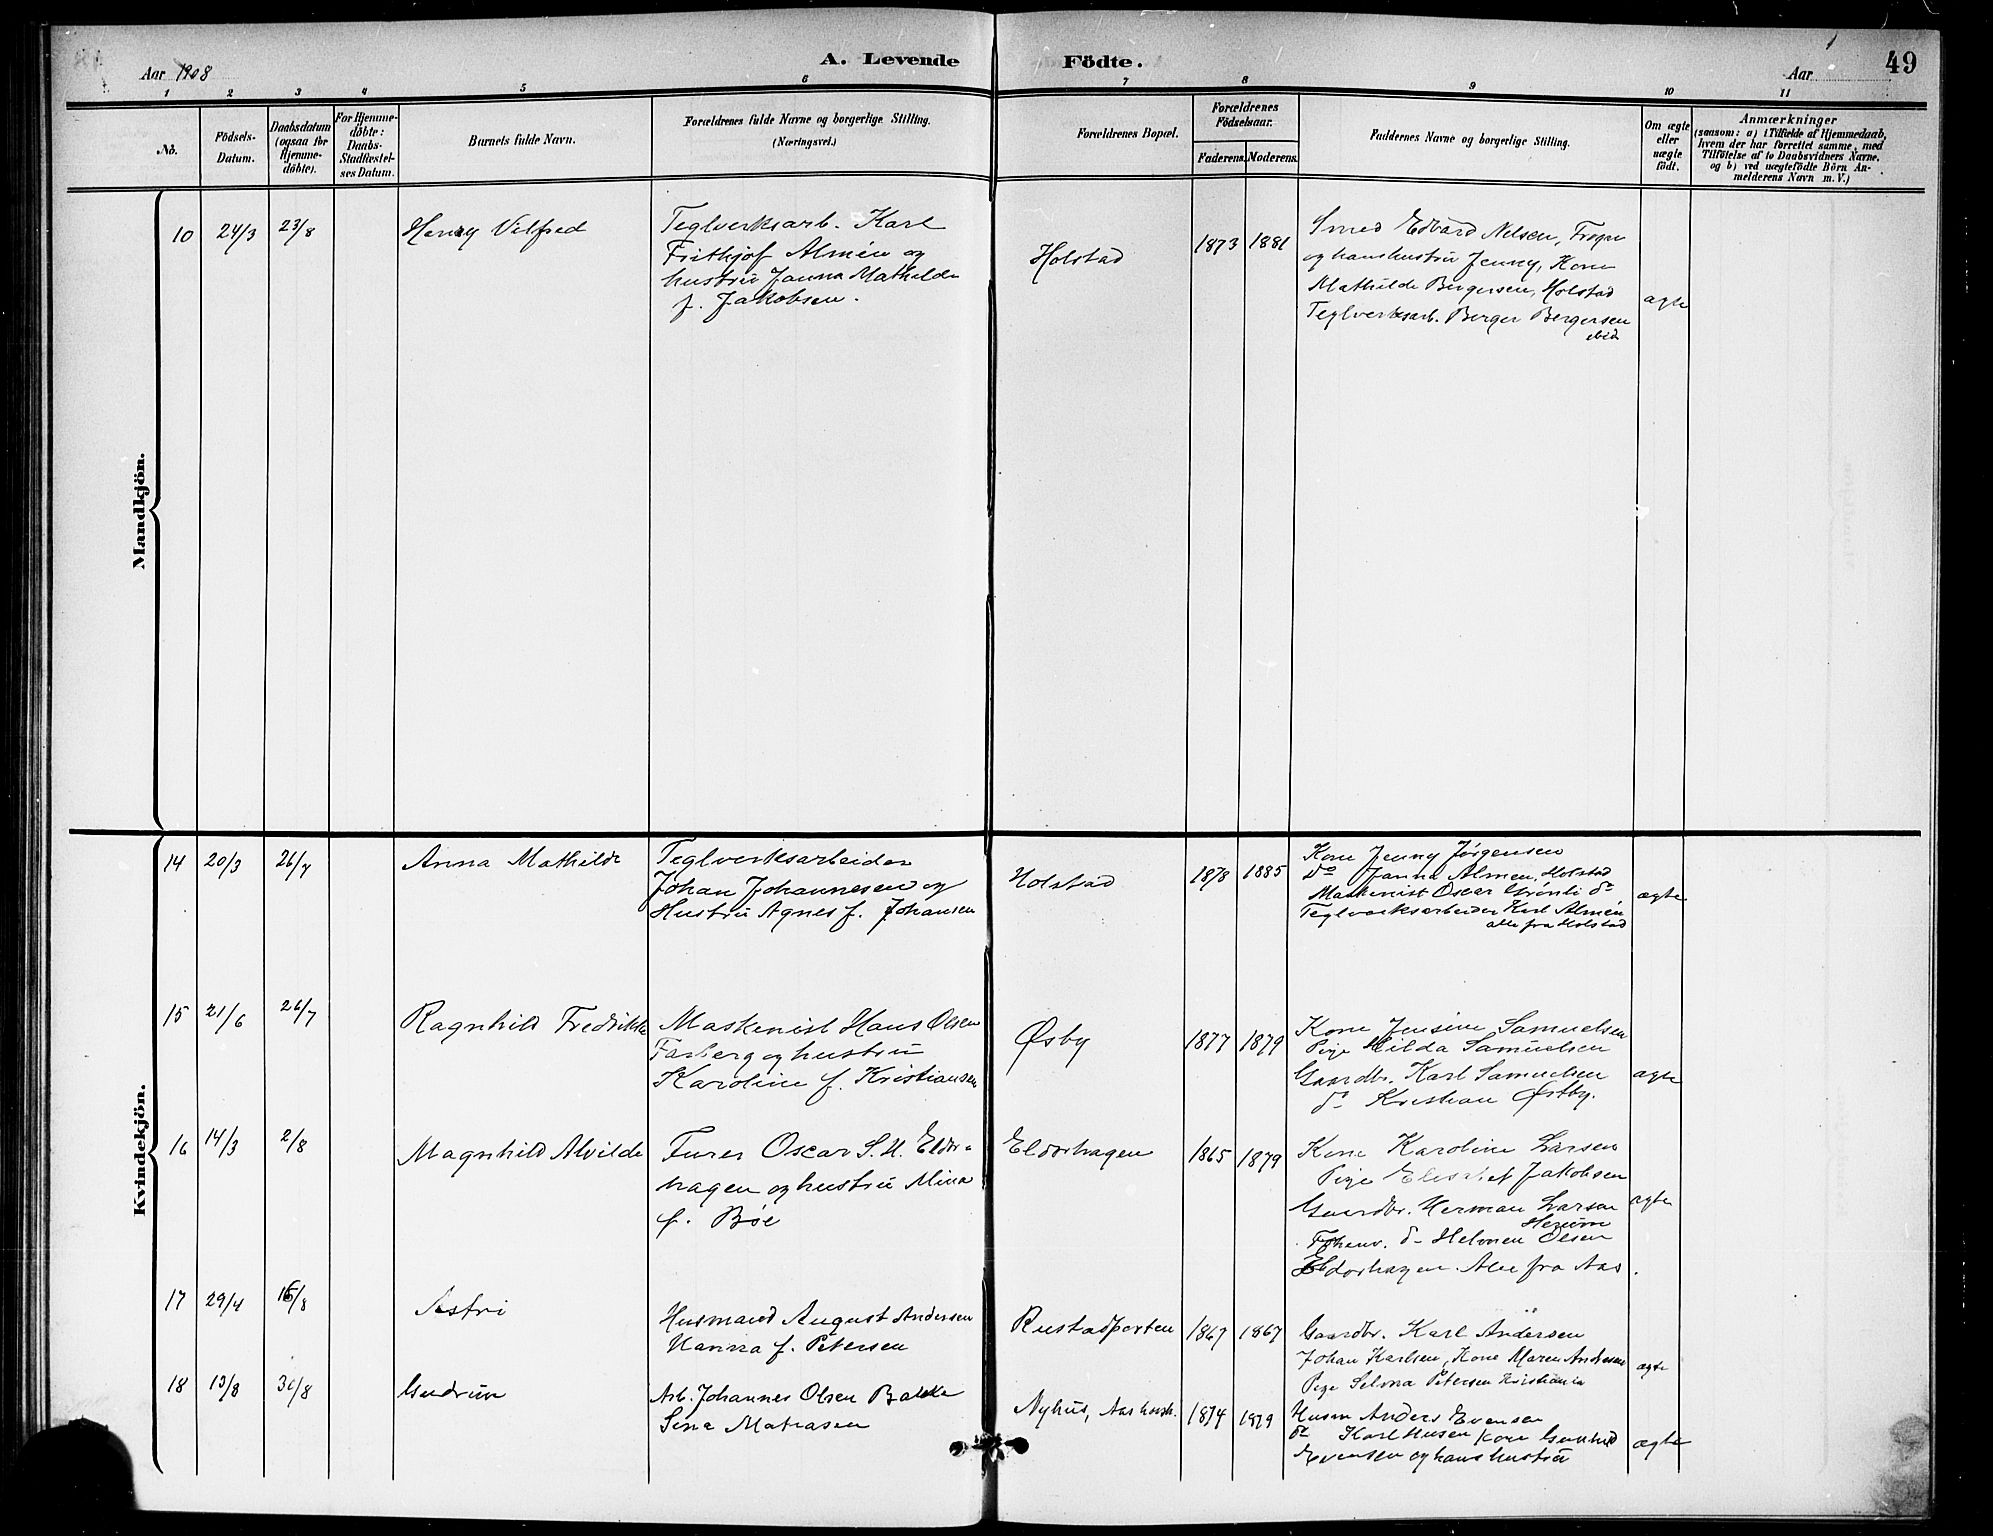 Aar 1908
A. Levende Födte.
Aar
49
1 2 3 4 5 6 7 8 9 10 11
No.
Födsels-Datum.
Daabsdatum (ogsaa for Hjemme-döbte).
For Hjemme-döbte: Daabs-Stadfæstel-ses Datum.
Barnets fulde Navn.
Forældrenes fulde Navne og borgerlige Stilling.
(Næringsvei.)
Forældrenes Bopæl.
Forældrenes Födselsaar.
Faderens. Moderens.
Faddernes Navne og borgerlige Stilling.
Om ægte eller uægte födt.
Anmærkninger
(saasom: a) i Tilfælde af Hjemmedaab,
hvem der har forrettet samme, med
Tilföielse af to Daabsvidners Navne,
og b) ved uægtefödte Börn An-
melderens Navn m. V.)
Mandkjön.
10 24/3 23/8 Henry Vilfred
Teglverksarb. Karl
Frithjof Almén og
hustru Janna Mathilde
f. Jakobsen.
Holstad
1873 1881
Smed Edvard Nilsen, Frogn
og hans hustru Jenny, Kone
Mathilde Bergersen, Holstad
Teglverksarb. Berger Bergersen
ibid
ægte
Kvindekjön.
14 20/3 26/7 Anna Mathilde
Teglverksarbeider
Johan Johannesen og
Hustru Agnes f. Johansen
Holstad
1878 1885
Kone Jenny Jørgensen
do Janna Almen, Holstad
Maskinist Oscar Grönli do
Teglverksarbeider Karl Almén
alle fra Holstad
ægte
15 21/6 26/7 Ragnhild Fredrikke
Maskenist Hans Olsen
Farberg og hustru
Karoline f. Kristiansen
Øsby
1877 1879
Kone Jensine Samuelsen
Pige Hilda Samuelsen
Gaardbr. Karl Samuelsen
do Kristian Østby.
ægte
16 14/3 2/8 Magnhild Alvilde
Furer Oscar S. H. Eldor-
hagen og hustru Mina
f. Böe
Eldorhagen
1865 1879
Kone Karoline Larsen
Pige Elisabet Jakobsen
Gaardbr. Herman Larsen
Herum
do Helmen Olsen
Eldorhagen. Alle fra Aas.
ægte
17 29/4 16/8 Astri
Husmand August Andersen
Hanna f. Petersen
Rustadporten
1867 1867
Gaardbr. Karl Andersen
Johan Karlsen, Kone Maren Andersen
Pige Selma Petersen Kristiania
ægte
18 13/8 30/8 Gudrun
Arb. Johannes Olsen Bakke
Sina Matiasen
Nyhus, Aas
1874 1879
Husm Anders Evensen
do Karl Husen kone Gunhild
Evensen og hans hustru
ægte